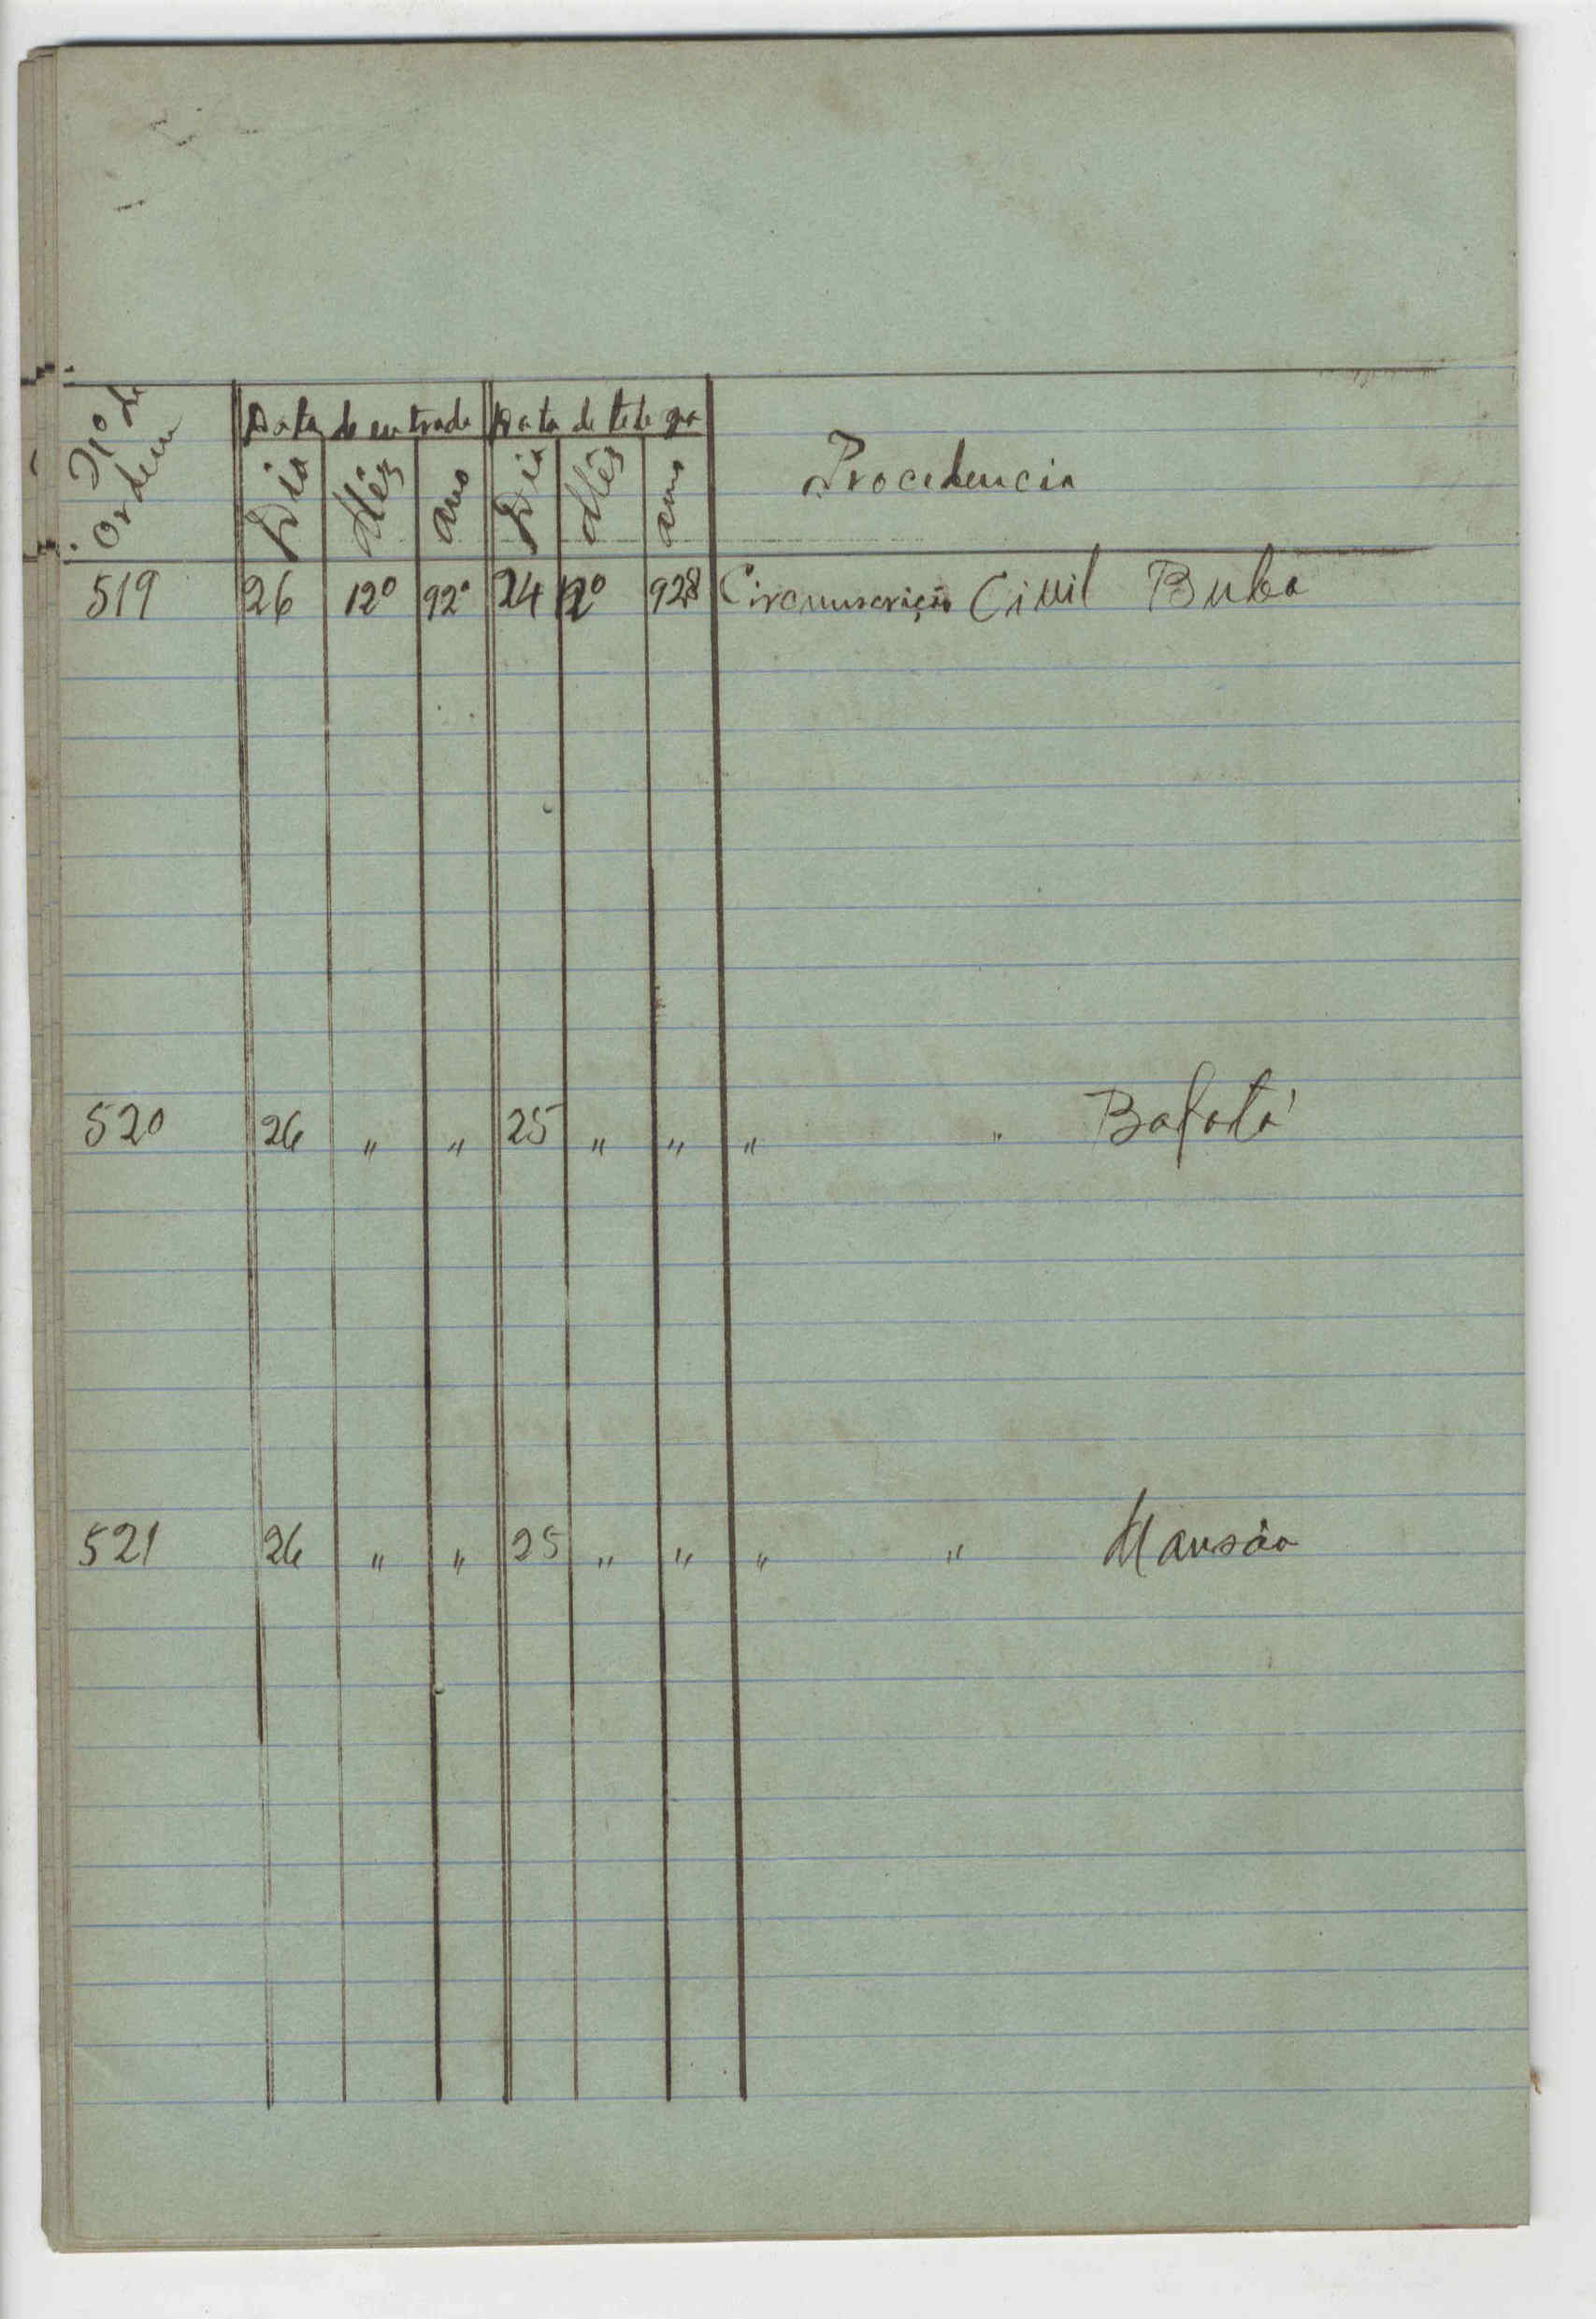 Nº de Ordem
Data de entrada Data de tele gra
Dia Mês ano Dia Mês ano Procedencia
519 26 12º 92º 24 12º 928 Circunscrição Civil Buba
520 26 " " 25 " " " " Bafatá
521 26 " " 25 " " " " Mansôa